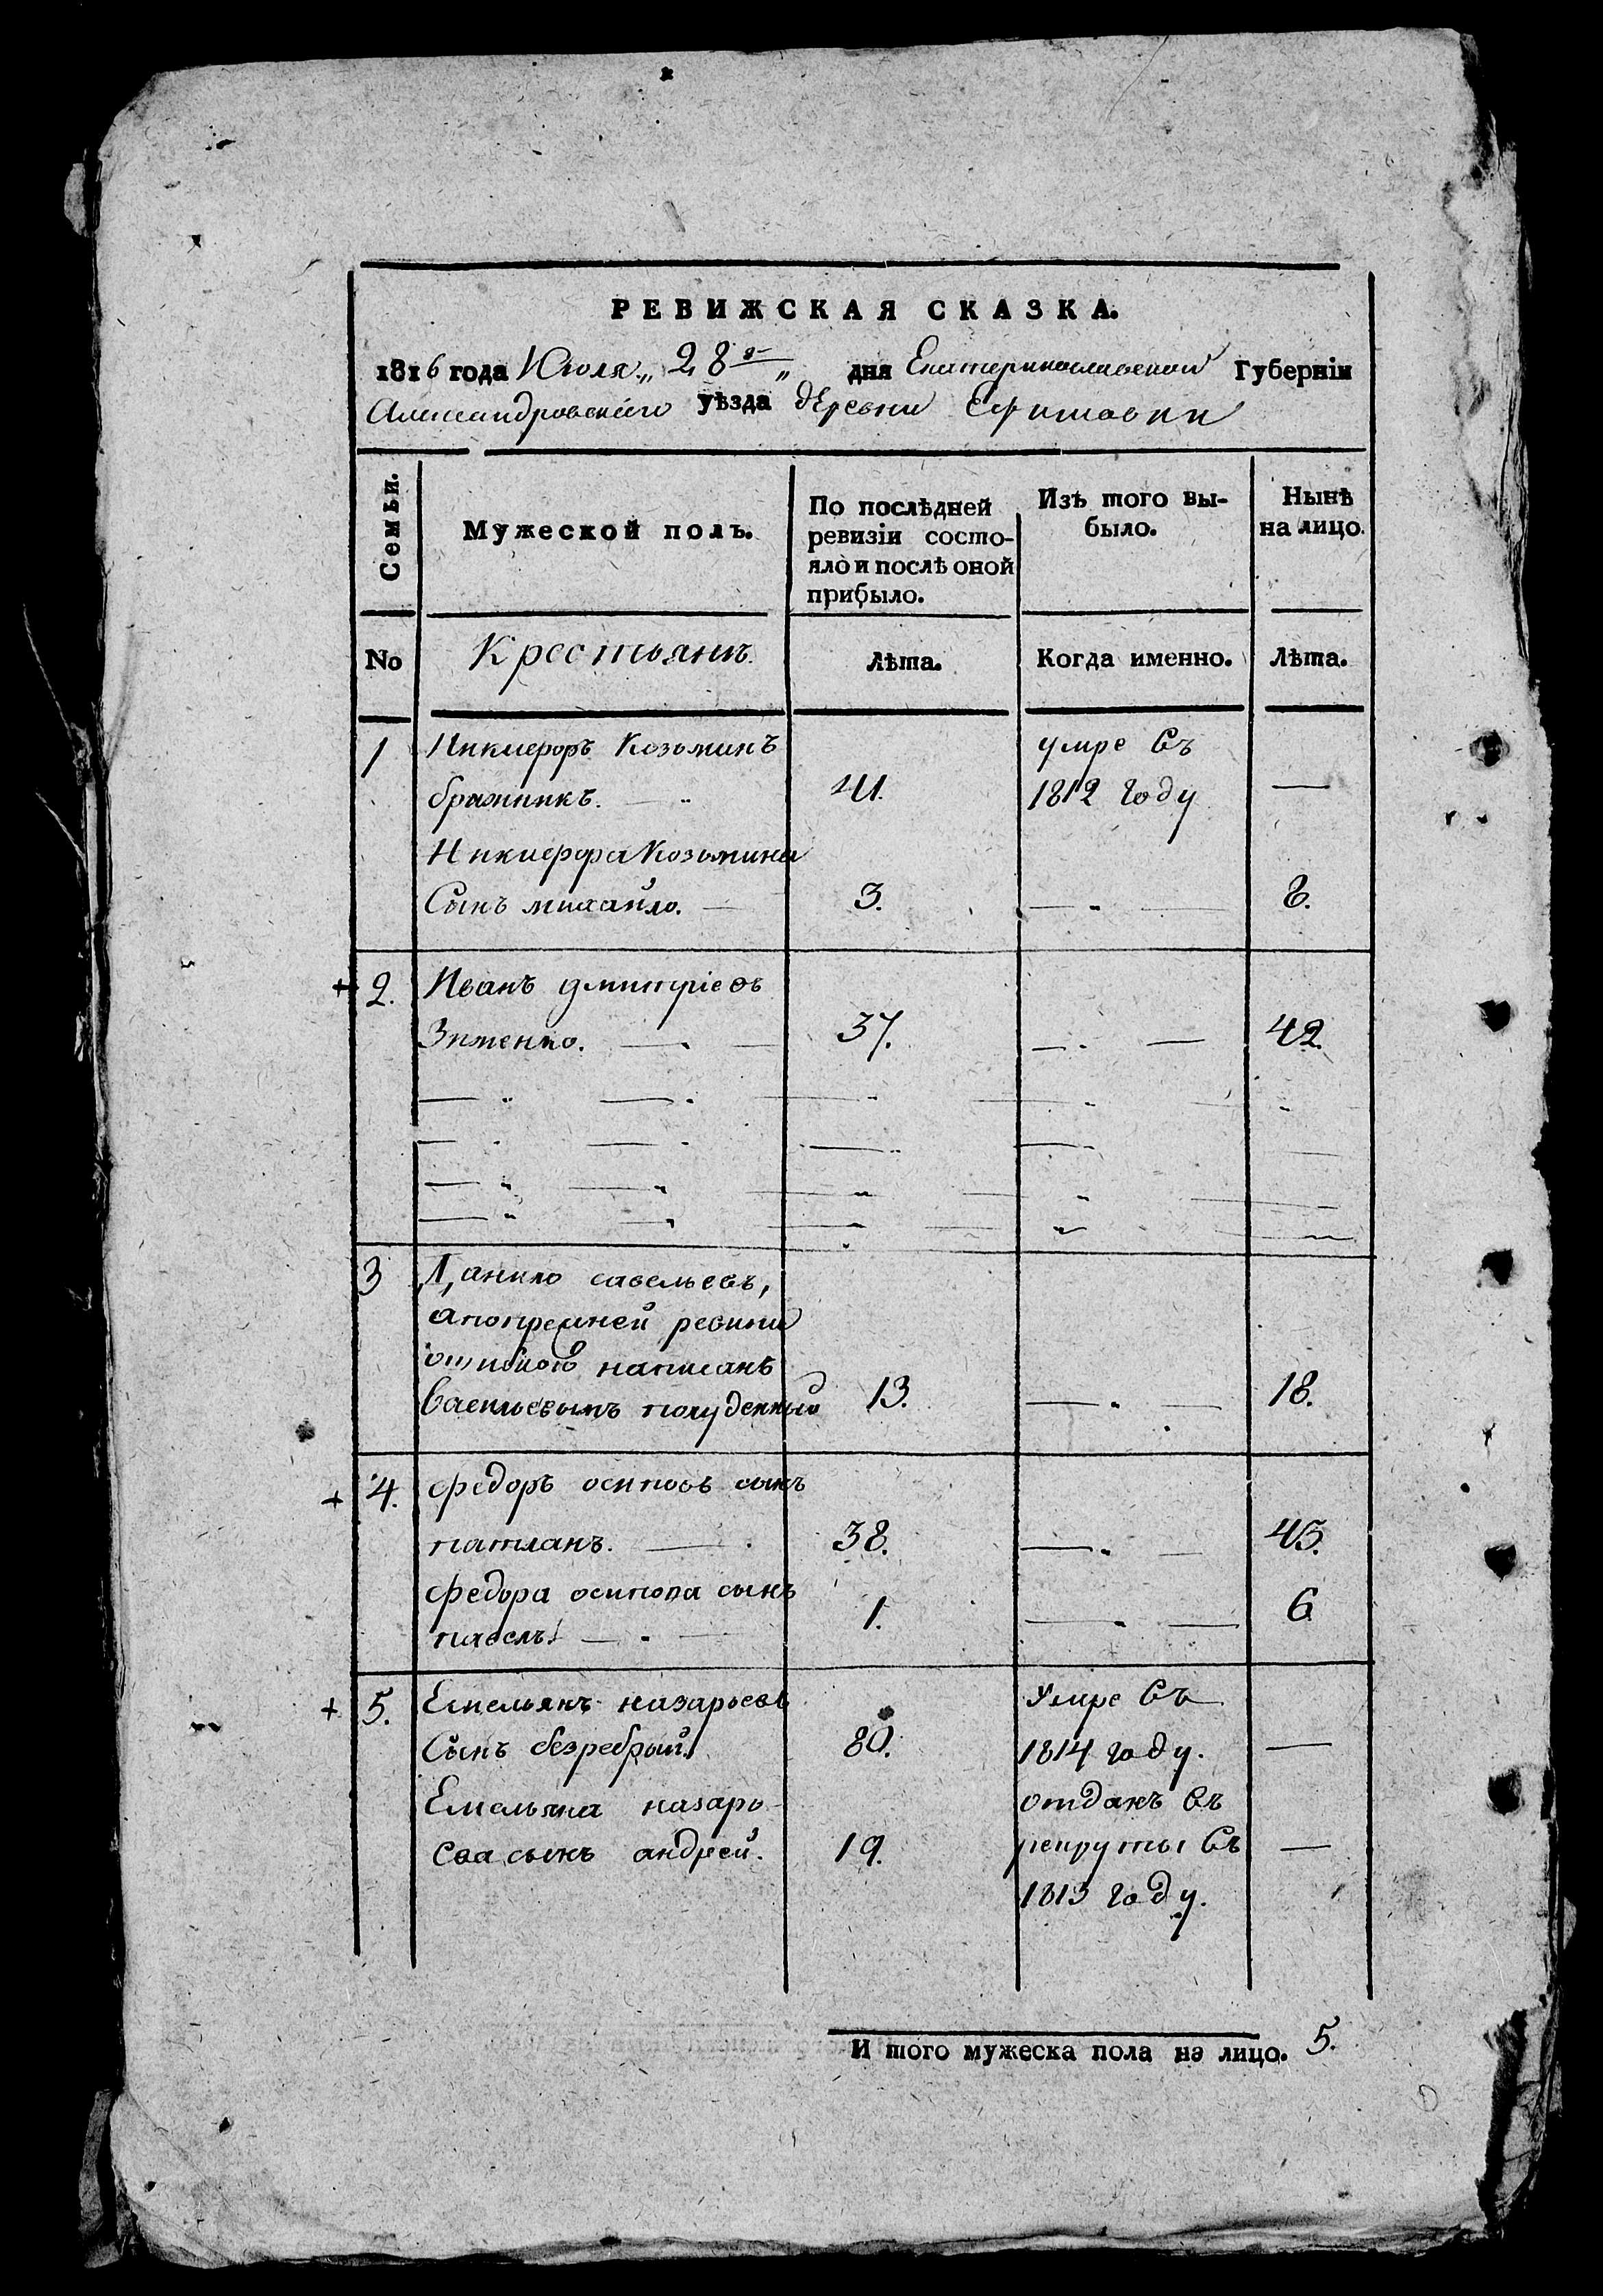 РЕВИЖСКАЯ СКАЗКА.
1816 года Июля „ 28 „ дня Екатеринославской Губернiи
Александровского уѣзда деревни Ефимовки
Семьи.
Мужеской полъ.
По послѣдней
ревизiи состо-
яло и послѣ оной
прибыло.
Изъ того вы-
было.
Нынѣ
на лицо.
No
Крестьянъ
Лѣта.
Когда именно.
Лѣта.
1 Никифоръ Козьминъ умре въ
бражникъ. 41. 1812 году —
Никифора Козьмина
Сынъ михайло. — 3. — 8.
+ 2. Иванъ дмитрiевъ
Зименко. — 37. — 42.
3 Данило савельевъ,
апопрежней ревизiи
ошибкою написанъ
васильевымъ полуденный 13. — 18.
+ 4. федоръ осиповъ сынъ
патланъ. — 38. — 43.
федора осипова сынъ
павелъ. — 1. — 6
+ 5. Емельянъ назарьевъ Умре въ
Сынъ безребрый. 80. 1814 году. —
Емельяна назарь- отданъ въ
ева сынъ андрей. 19. рекруты въ —
1813 году.
И того мужеска пола на лицо. 5.